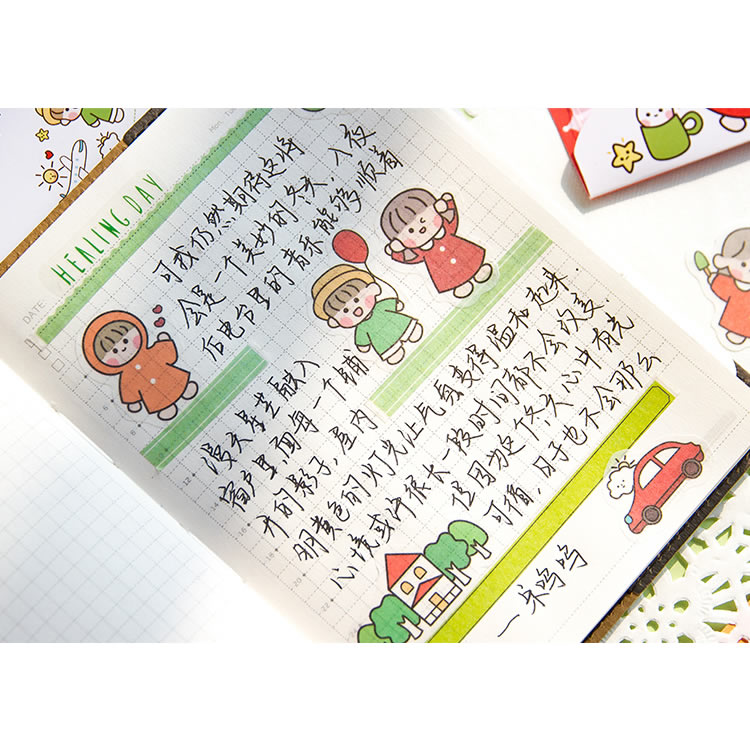 Mon.
HEALING DAY
DATE:
可我仍然期待这将
会是一个美妙的冬天，入夜
后电台里的音乐能够顺着
漫天星芒融入
窗户里面每一个铺
开的影子，屋内
明黄色的灯光让气氛变得温和起来.
心境或许很长一段时间都不会改变.
但因为这个冬天心中有光
可循，日子也不会那么
一朵呜呜